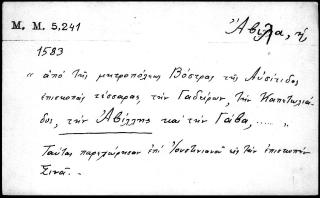 Μ. Μ. 5,241
Ἀβίλα, ἡ
1583
" ἀπὸ τῆς μητροπόλεως Βόστρας τῆς Αὐσίτιδος
ἐπισκοπὰς τέσσαρας, τὴν Γαδείρων, τὴν Καπετωλιά-
δος, τὴν Ἀβίλλης καὶ τὴν Γάβα, ..... "
Ταύτας παρεχώρησεν ἐπὶ Ἰουστινιανοῦ εἰς τὴν ἐπισκοπὴν
Σινᾶ. -